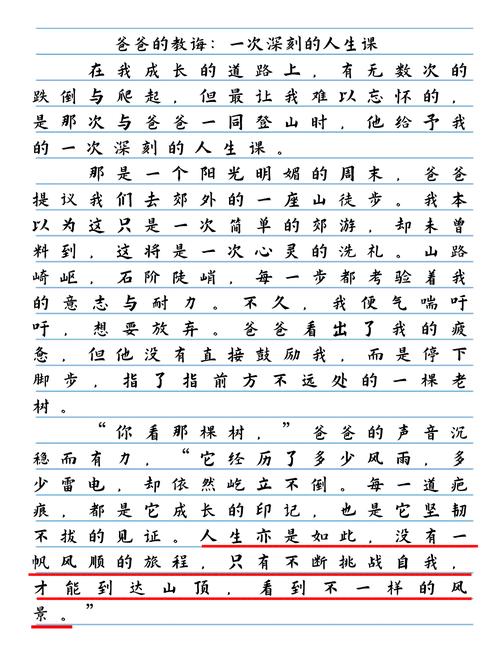 爸爸的教诲：一次深刻的人生课
在我成长的道路上，有无数次的
跌倒与爬起，但最让我难以忘怀的，
是那次与爸爸一同登山时，他给予我
的一次深刻的人生课。
那是一个阳光明媚的周末，爸爸
提议我们去郊外的一座山徒步。我本
以为这只是一次简单的郊游，却未曾
料到，这将是一次心灵的洗礼。山路
崎岖，石阶陡峭，每一步都考验着我
的意志与耐力。不久，我便气喘吁
吁，想要放弃。爸爸看出了我的疲
惫，但他没有直接鼓励我，而是停下
脚步，指了指前方不远处的一棵老
树。
“你看那棵树，”爸爸的声音沉
稳而有力，“它经历了多少风雨，多
少雷电，却依然屹立不倒。每一道疤
痕，都是它成长的印记，也是它坚韧
不拔的见证。人生亦是如此，没有一
帆风顺的旅程，只有不断挑战自我，
才能到达山顶，看到不一样的风
景。”